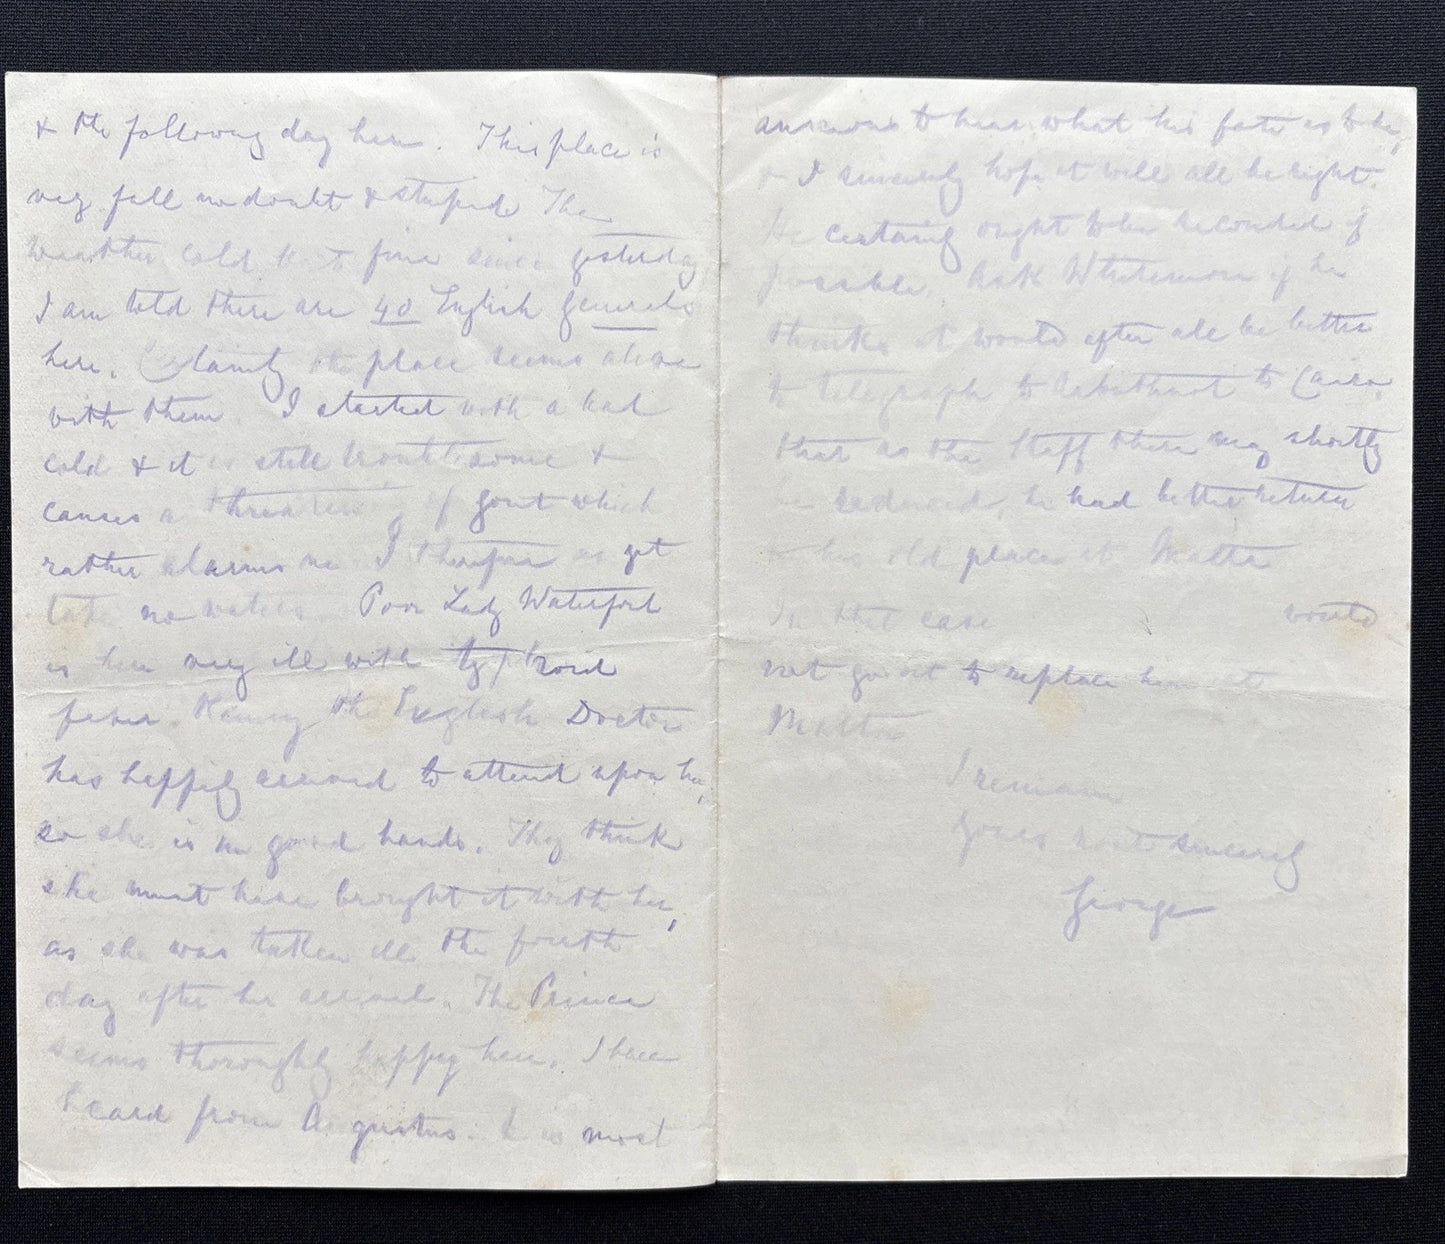 & the following day here. This place is
very full no doubt & stupid. The
weather cold but fine since yesterday,
I am told there are 40 English Generals
here. Certainly the place seems alive
with them. I started with a bad
cold & it is still troublesome &
causes a threatening of gout which
rather alarms me. I therefore as yet
take no waters. Poor Lady Waterford
is here very ill with typhoid
fever. the English Doctor
has happily arrived to attend upon her,
so she is in good hands. They think
she must have brought it with her,
as she was taken ill the fourth
day after her arrival. The Prince
seems thoroughly happy here. I have
heard from Augustus. he is most
anxious to hear what his fate is to be,
& I sincerely hope it will all be right.
He certainly ought to be seconded if
possible. Ask Whitmore if he
thinks it would after all be better
to telegraph to Arbuthnot to Cairo,
that as the Staff there may shortly
be reduced, he had better return
to his old place at Malta
In that case would
not go out to replace him at
Malta
I remain
Yours most sincerely
George